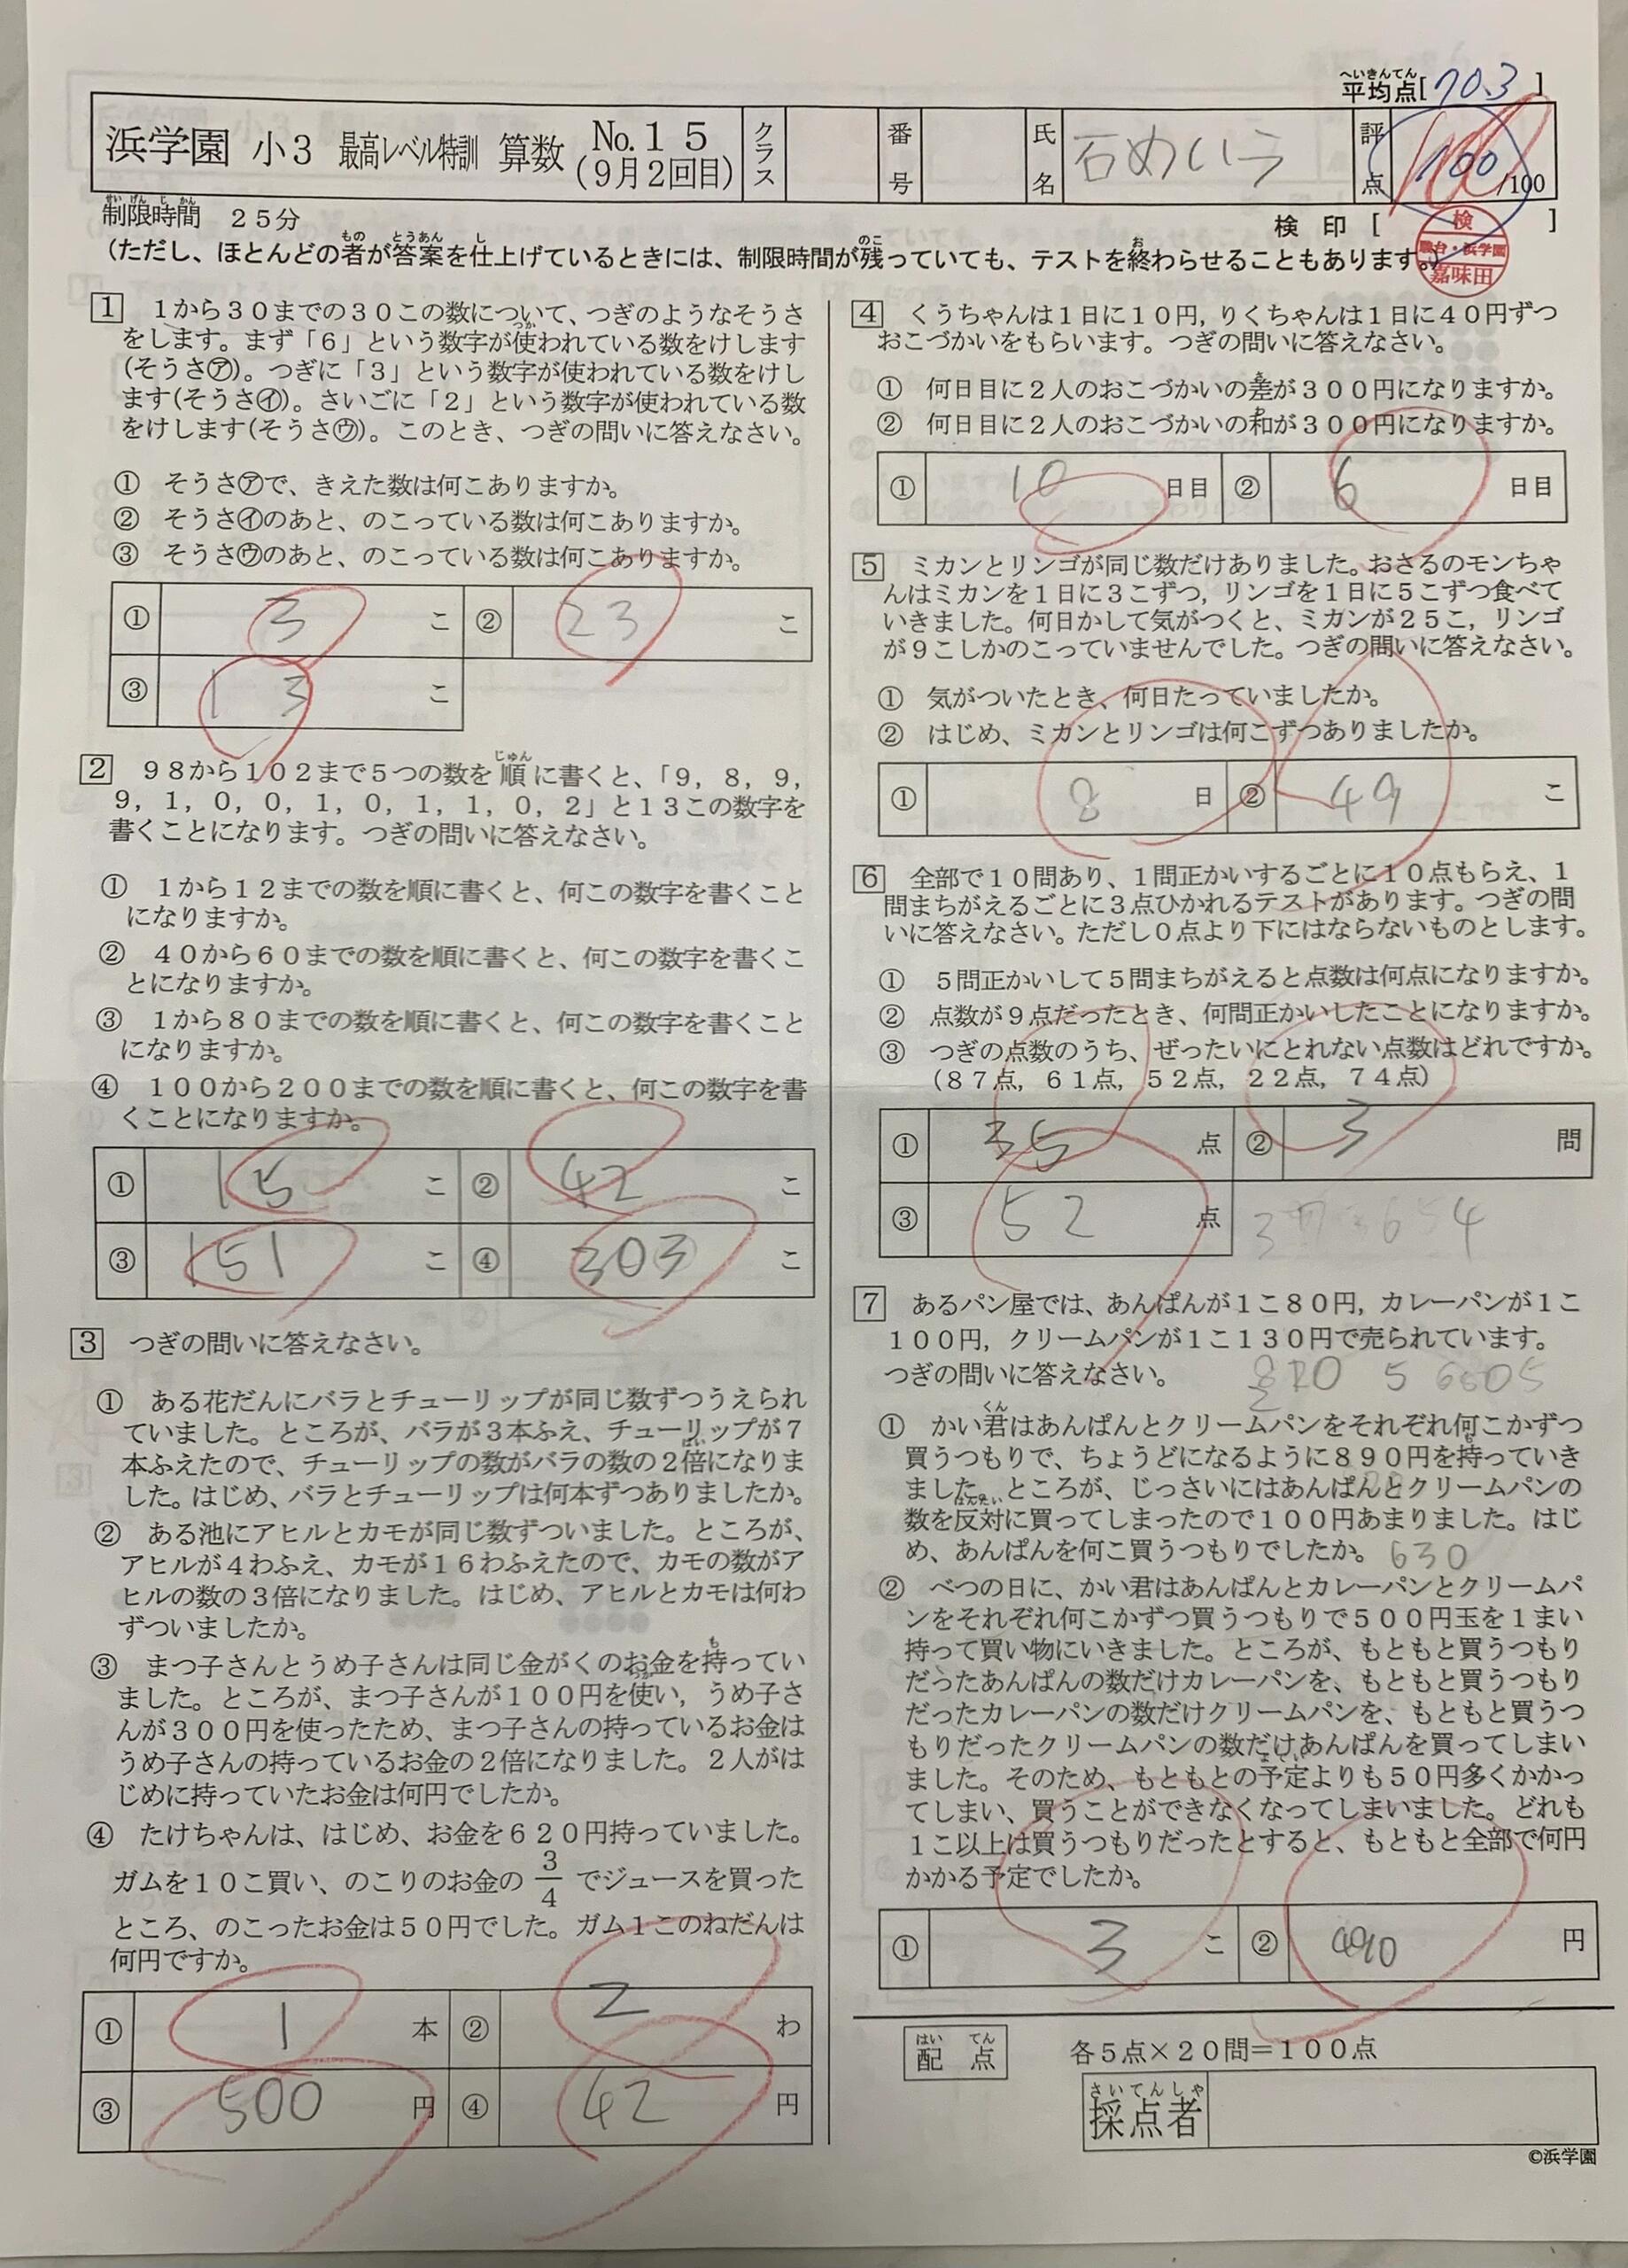 へいきんてん
平均点[70.3]
浜学園 小3 最高レベル特訓 算数 No.15 (9月2回目) クラス 番号 氏名 石めいう 評点 100 /100
せいげんじかん
制限時間 25分
検印[ ]
検
駿台・浜学園
嘉味田
(ただし、ほとんどの者が答案を仕上げているときには、制限時間が残っていても、テストを終わらせることもあります。)
1 1から30までの30この数について、つぎのようなそうさ
をします。まず「6」という数字が使われている数をけします
(そうさ㋐)。つぎに「3」という数字が使われている数をけし
ます(そうさ㋑)。さいごに「2」という数字が使われている数
をけします(そうさ㋒)。このとき、つぎの問いに答えなさい。
① そうさ㋐で、きえた数は何こありますか。
② そうさ㋑のあと、のこっている数は何こありますか。
③ そうさ㋒のあと、のこっている数は何こありますか。
① 3 こ ② 23 こ
③ 13 こ
2 98から102まで5つの数を順に書くと、「9, 8, 9,
9, 1, 0, 0, 1, 0, 1, 1, 0, 2」と13この数字を
書くことになります。つぎの問いに答えなさい。
① 1から12までの数を順に書くと、何この数字を書くこと
になりますか。
② 40から60までの数を順に書くと、何この数字を書くこ
とになりますか。
③ 1から80までの数を順に書くと、何この数字を書くこと
になりますか。
④ 100から200までの数を順に書くと、何この数字を書
くことになりますか。
① 15 こ ② 42 こ
③ 151 こ ④ 303 こ
3 つぎの問いに答えなさい。
① ある花だんにバラとチューリップが同じ数ずつうえられ
ていました。ところが、バラが3本ふえ、チューリップが7
本ふえたので、チューリップの数がバラの数の2倍になりま
した。はじめ、バラとチューリップは何本ずつありましたか。
② ある池にアヒルとカモが同じ数ずついました。ところが、
アヒルが4わふえ、カモが16わふえたので、カモの数がア
ヒルの数の3倍になりました。はじめ、アヒルとカモは何わ
ずついましたか。
③ まつ子さんとうめ子さんは同じ金がくのお金を持ってい
ました。ところが、まつ子さんが100円を使い, うめ子さ
んが300円を使ったため、まつ子さんの持っているお金は
うめ子さんの持っているお金の2倍になりました。2人がは
じめに持っていたお金は何円でしたか。
④ たけちゃんは、はじめ、お金を620円持っていました。
ガムを10こ買い、のこりのお金の 3/4 でジュースを買った
ところ、のこったお金は50円でした。ガム1このねだんは
何円ですか。
① 1 本 ② 2 わ
③ 500 円 ④ 42 円
4 くうちゃんは1日に10円, りくちゃんは1日に40円ずつ
おこづかいをもらいます。つぎの問いに答えなさい。
① 何日目に2人のおこづかいの差が300円になりますか。
② 何日目に2人のおこづかいの和が300円になりますか。
① 10 日目 ② 6 日目
5 ミカンとリンゴが同じ数だけありました。おさるのモンちゃ
んはミカンを1日に3こずつ, リンゴを1日に5こずつ食べて
いきました。何日かして気がつくと、ミカンが25こ, リンゴ
が9こしかのこっていませんでした。つぎの問いに答えなさい。
① 気がついたとき、何日たっていましたか。
② はじめ、ミカンとリンゴは何こずつありましたか。
① 8 日 ② 49 こ
6 全部で10問あり、1問正かいするごとに10点もらえ、1
問まちがえるごとに3点ひかれるテストがあります。つぎの問
いに答えなさい。ただし0点より下にはならないものとします。
① 5問正かいして5問まちがえると点数は何点になりますか。
② 点数が9点だったとき、何問正かいしたことになりますか。
③ つぎの点数のうち、ぜったいにとれない点数はどれですか。
(87点, 61点, 52点, 22点, 74点)
① 35 点 ② 3 問
③ 52 点
7 あるパン屋では、あんぱんが1こ80円, カレーパンが1こ
100円, クリームパンが1こ130円で売られています。
つぎの問いに答えなさい。
① かい君はあんぱんとクリームパンをそれぞれ何こかずつ
買うつもりで、ちょうどになるように890円を持っていき
ました。ところが、じっさいにはあんぱんとクリームパンの
数を反対に買ってしまったので100円あまりました。はじ
め、あんぱんを何こ買うつもりでしたか。 630
② べつの日に、かい君はあんぱんとカレーパンとクリームパ
ンをそれぞれ何こかずつ買うつもりで500円玉を1まい
持って買い物にいきました。ところが、もともと買うつもり
だったあんぱんの数だけカレーパンを、もともと買うつもり
だったカレーパンの数だけクリームパンを、もともと買うつ
もりだったクリームパンの数だけあんぱんを買ってしまい
ました。そのため、もともとの予定よりも50円多くかかっ
てしまい、買うことができなくなってしまいました。どれも
1こ以上は買うつもりだったとすると、もともと全部で何円
かかる予定でしたか。
① 3 こ ② 490 円
はいてん
配点 各5点×20問=100点
さいてんしゃ
採点者
©浜学園